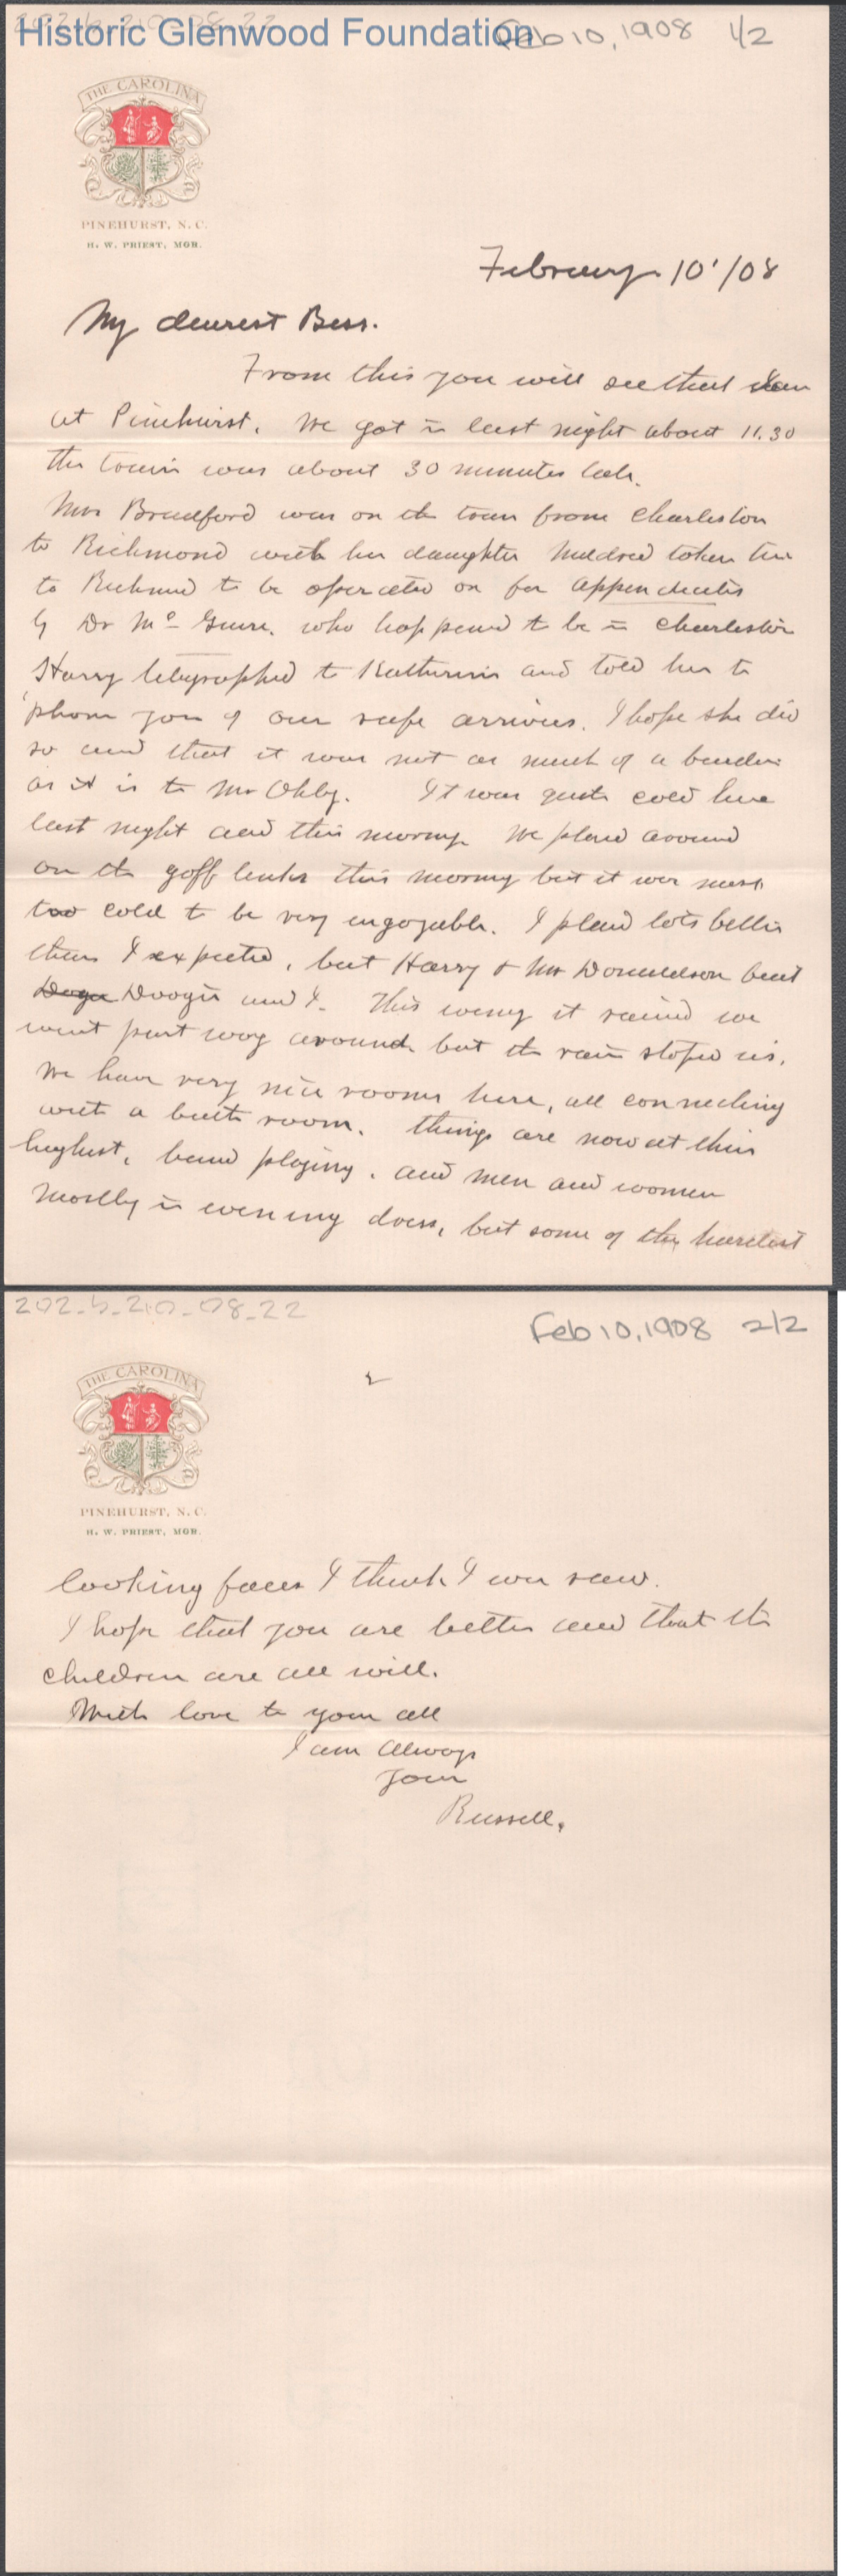 202-b-210-08-22
Historic Glenwood Foundation
Feb 10, 1908 1/2
THE CAROLINA
PINEHURST, N. C.
H. W. PRIEST, MGR.
February 10'/08
My dearest Bess.
From this you will see that I am
at Pinehurst. We got in last night about 11.30
the train was about 30 minutes late.
Mrs Bradford was on the train from Charleston
to Richmond with her daughter Mildred taken her
to Richmond to be operated on for Appendicitis
by Dr McGuire. who happened to be in Charleston
Harry telegraphed to Katherine and told her to
'phone you of our safe arrival. I hope she did
so and that it was not as much of a burden
as it is to Mr Ohley. It was quite cold here
last night and this morning. We played around
on the goff links this morning but it was most
too cold to be very engoyable. I played lots better
than I expected, but Harry & Mr Donaldson beat
Doogie and I. This evening it rained we
went part way around but the rain stoped us.
We have very nice rooms here, all connecting
with a bath room. things are now at their
heghest, band playing. and men and women
mostly in evening dress, but some of the hardest
202-b-210-08-22
Feb 10, 1908 2/2
2
THE CAROLINA
PINEHURST, N. C.
H. W. PRIEST, MGR.
looking faces I think I ever saw.
I hope that you are better and that the
children are all well.
With love to you all
I am Always
Your
Russell.